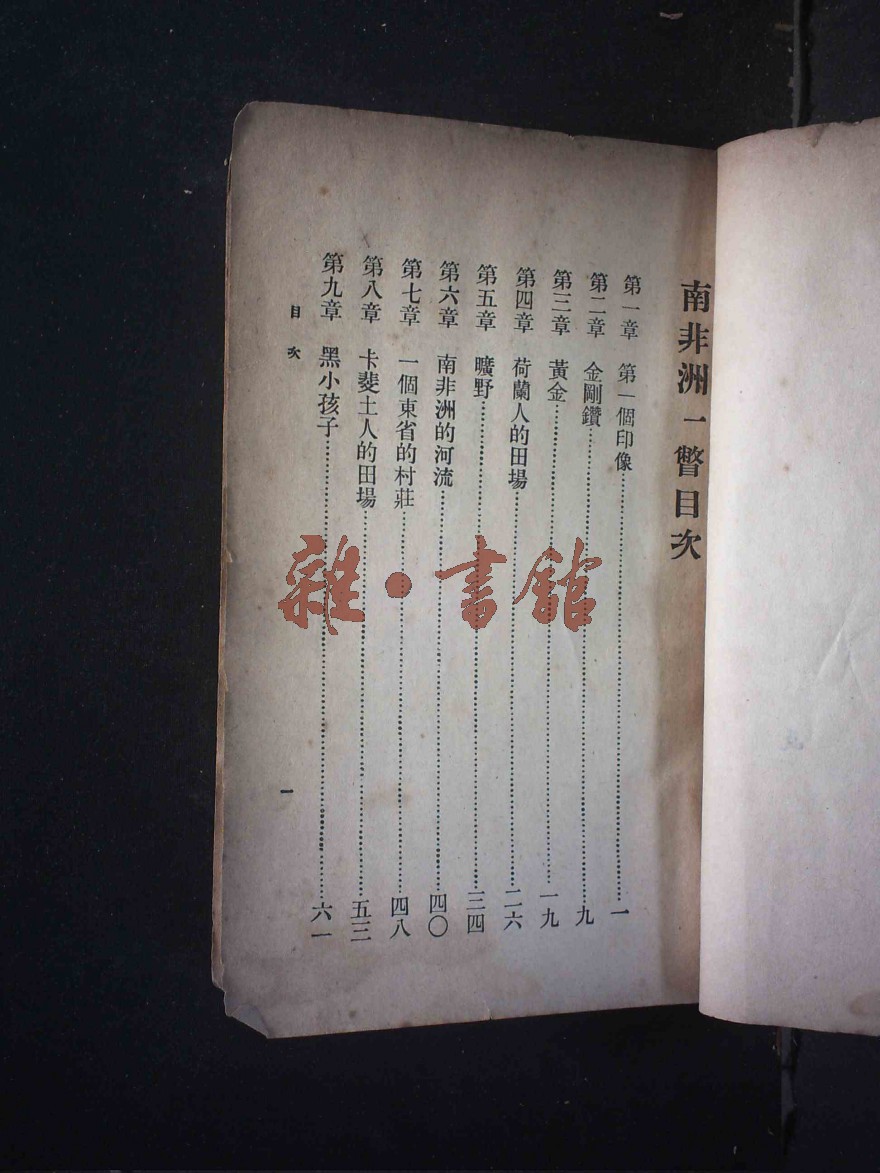 南非洲一瞥目次
第一章 第一個印像……一
第二章 金剛鑽……九
第三章 黃金……一九
第四章 荷蘭人的田場……二六
第五章 曠野……三四
第六章 南非洲的河流……四〇
第七章 一個東省的村莊……四八
第八章 卡斐土人的田場……五三
第九章 黑小孩子……六一
目次
一
雜·書館